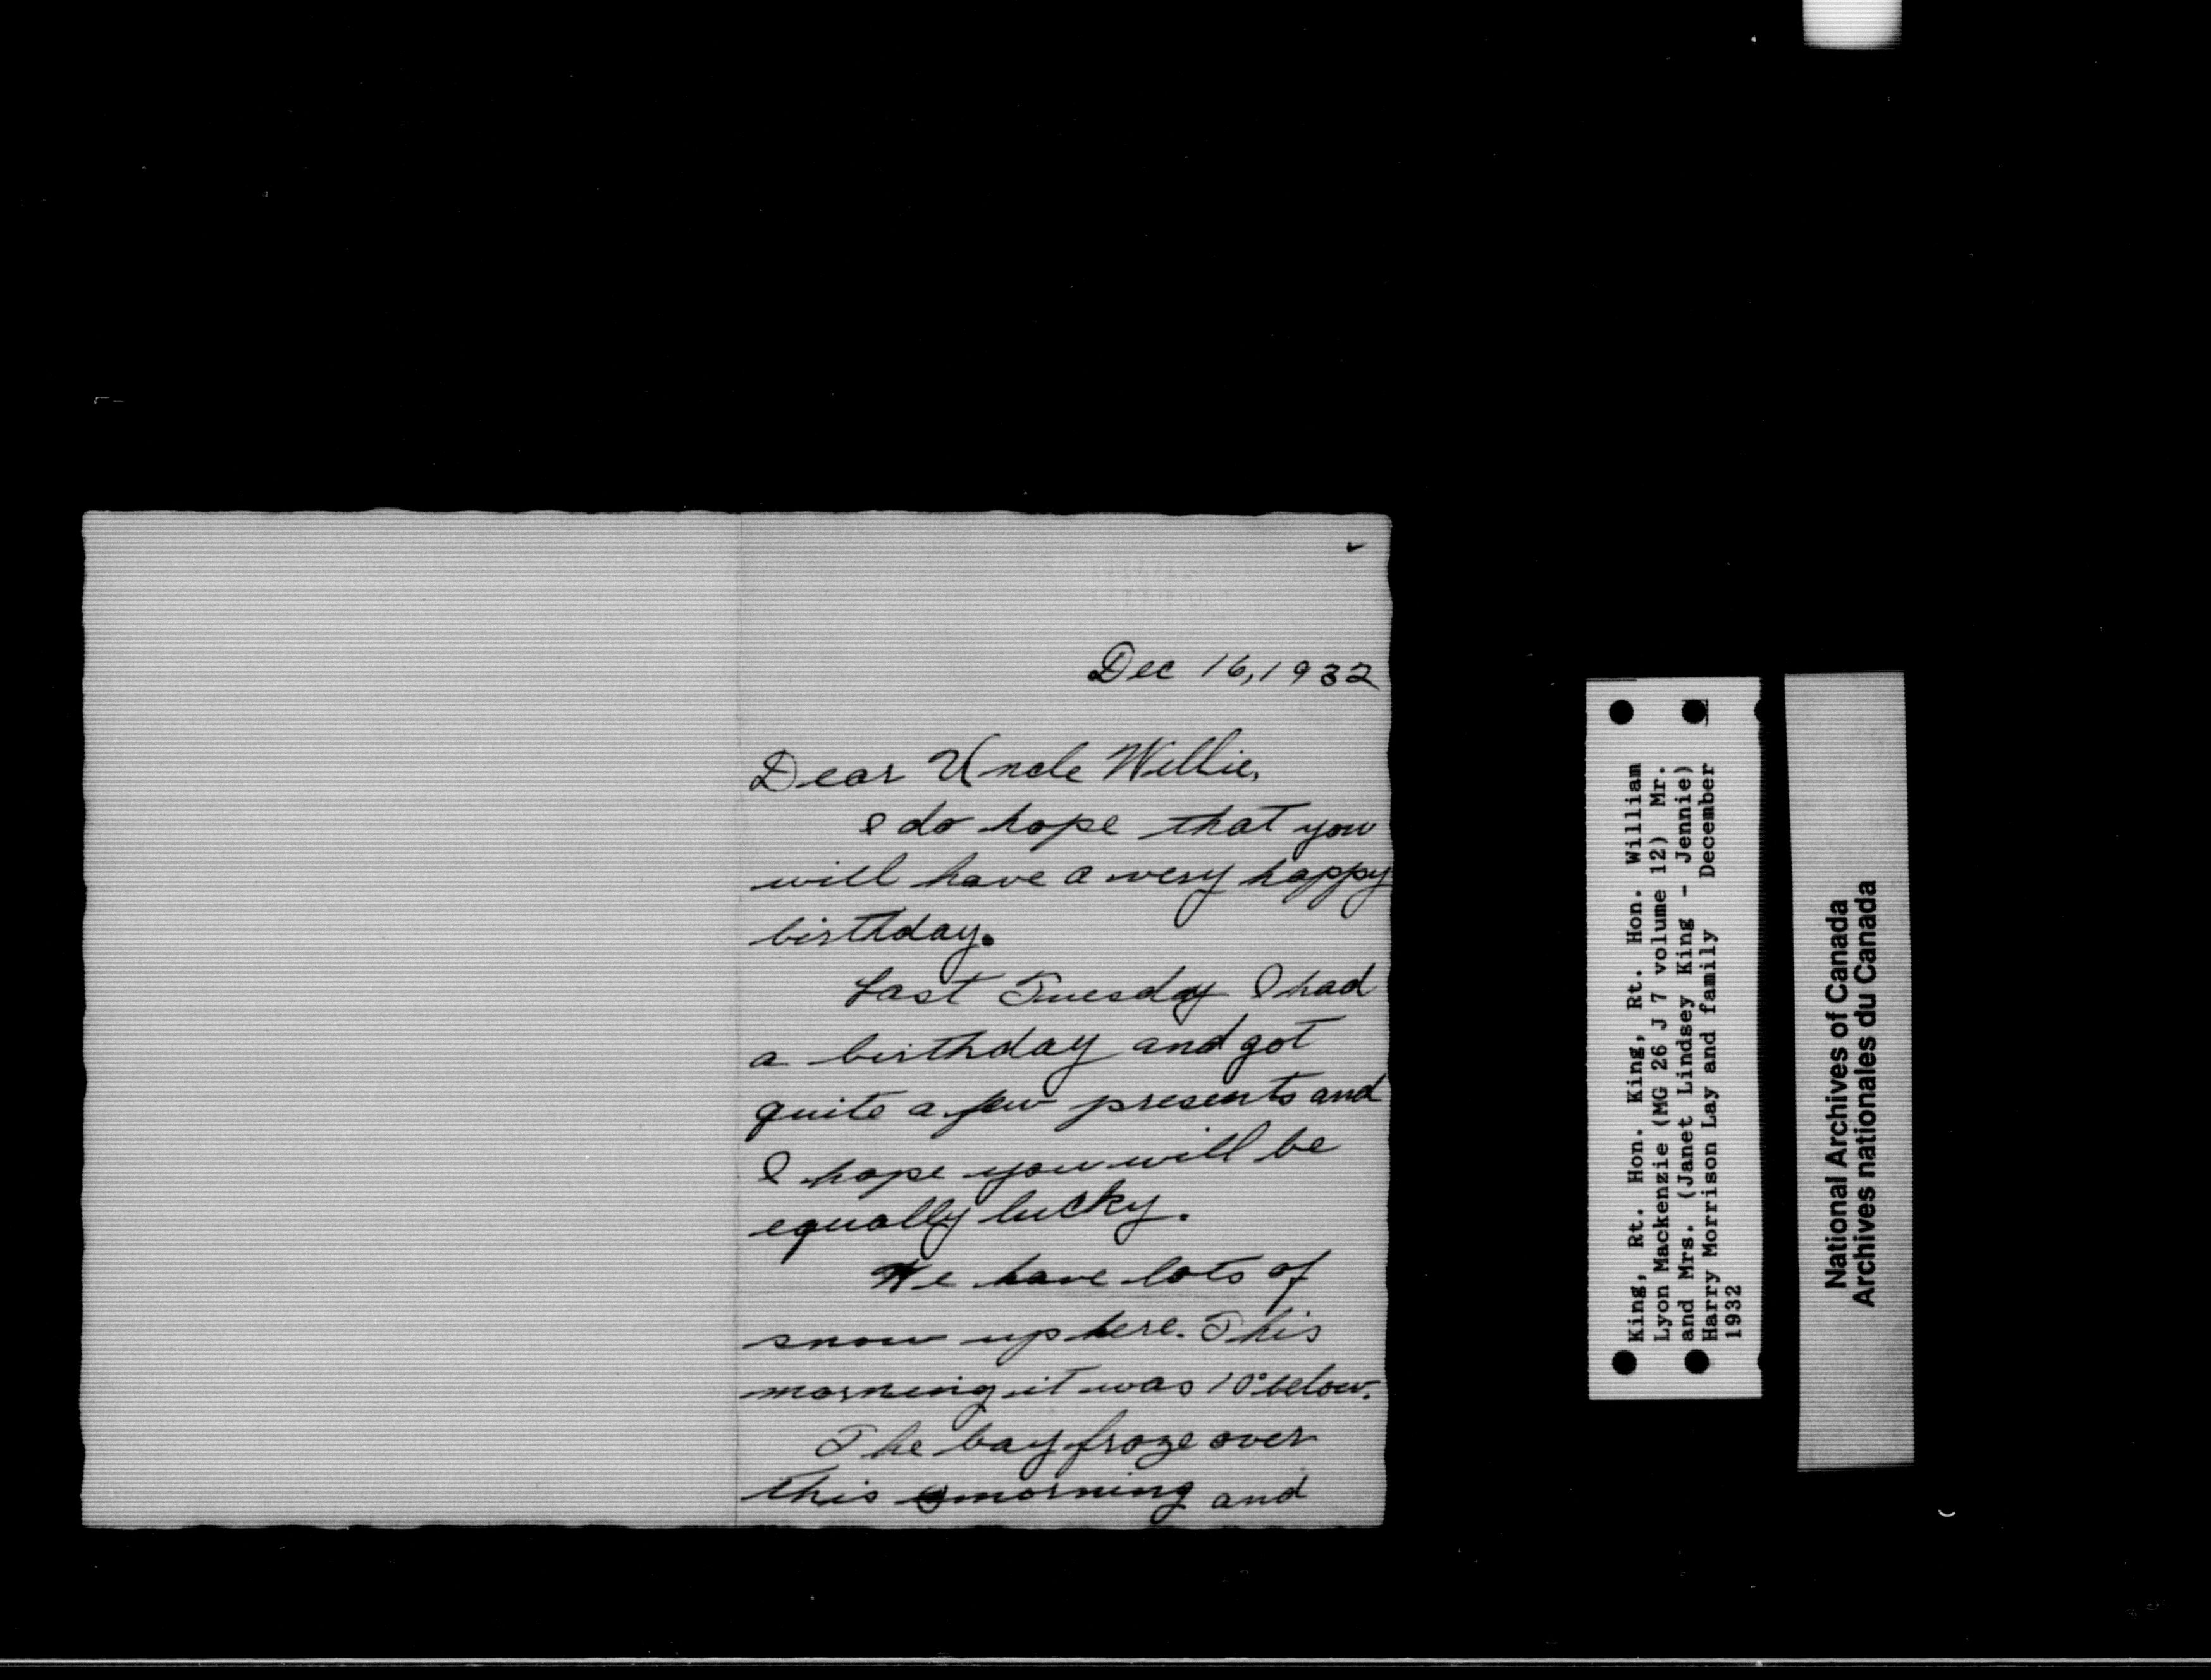 Dec 16, 1932
Dear Uncle Willie,
I do hope that you
will have a very happy
birthday.
Last Tuesday I had
a birthday and got
quite a few presents and
I hope you will be
equally lucky.
We have lots of
snow up here. This
morning it was 10° below.
The bay froze over
this morning and
King, Rt. Hon. King, Rt. Hon. William
Lyon Mackenzie (MG 26 J 7 volume 12) Mr.
and Mrs. (Janet Lindsey King - Jennie)
Harry Morrison Lay and family December
1932
National Archives of Canada
Archives nationales du Canada